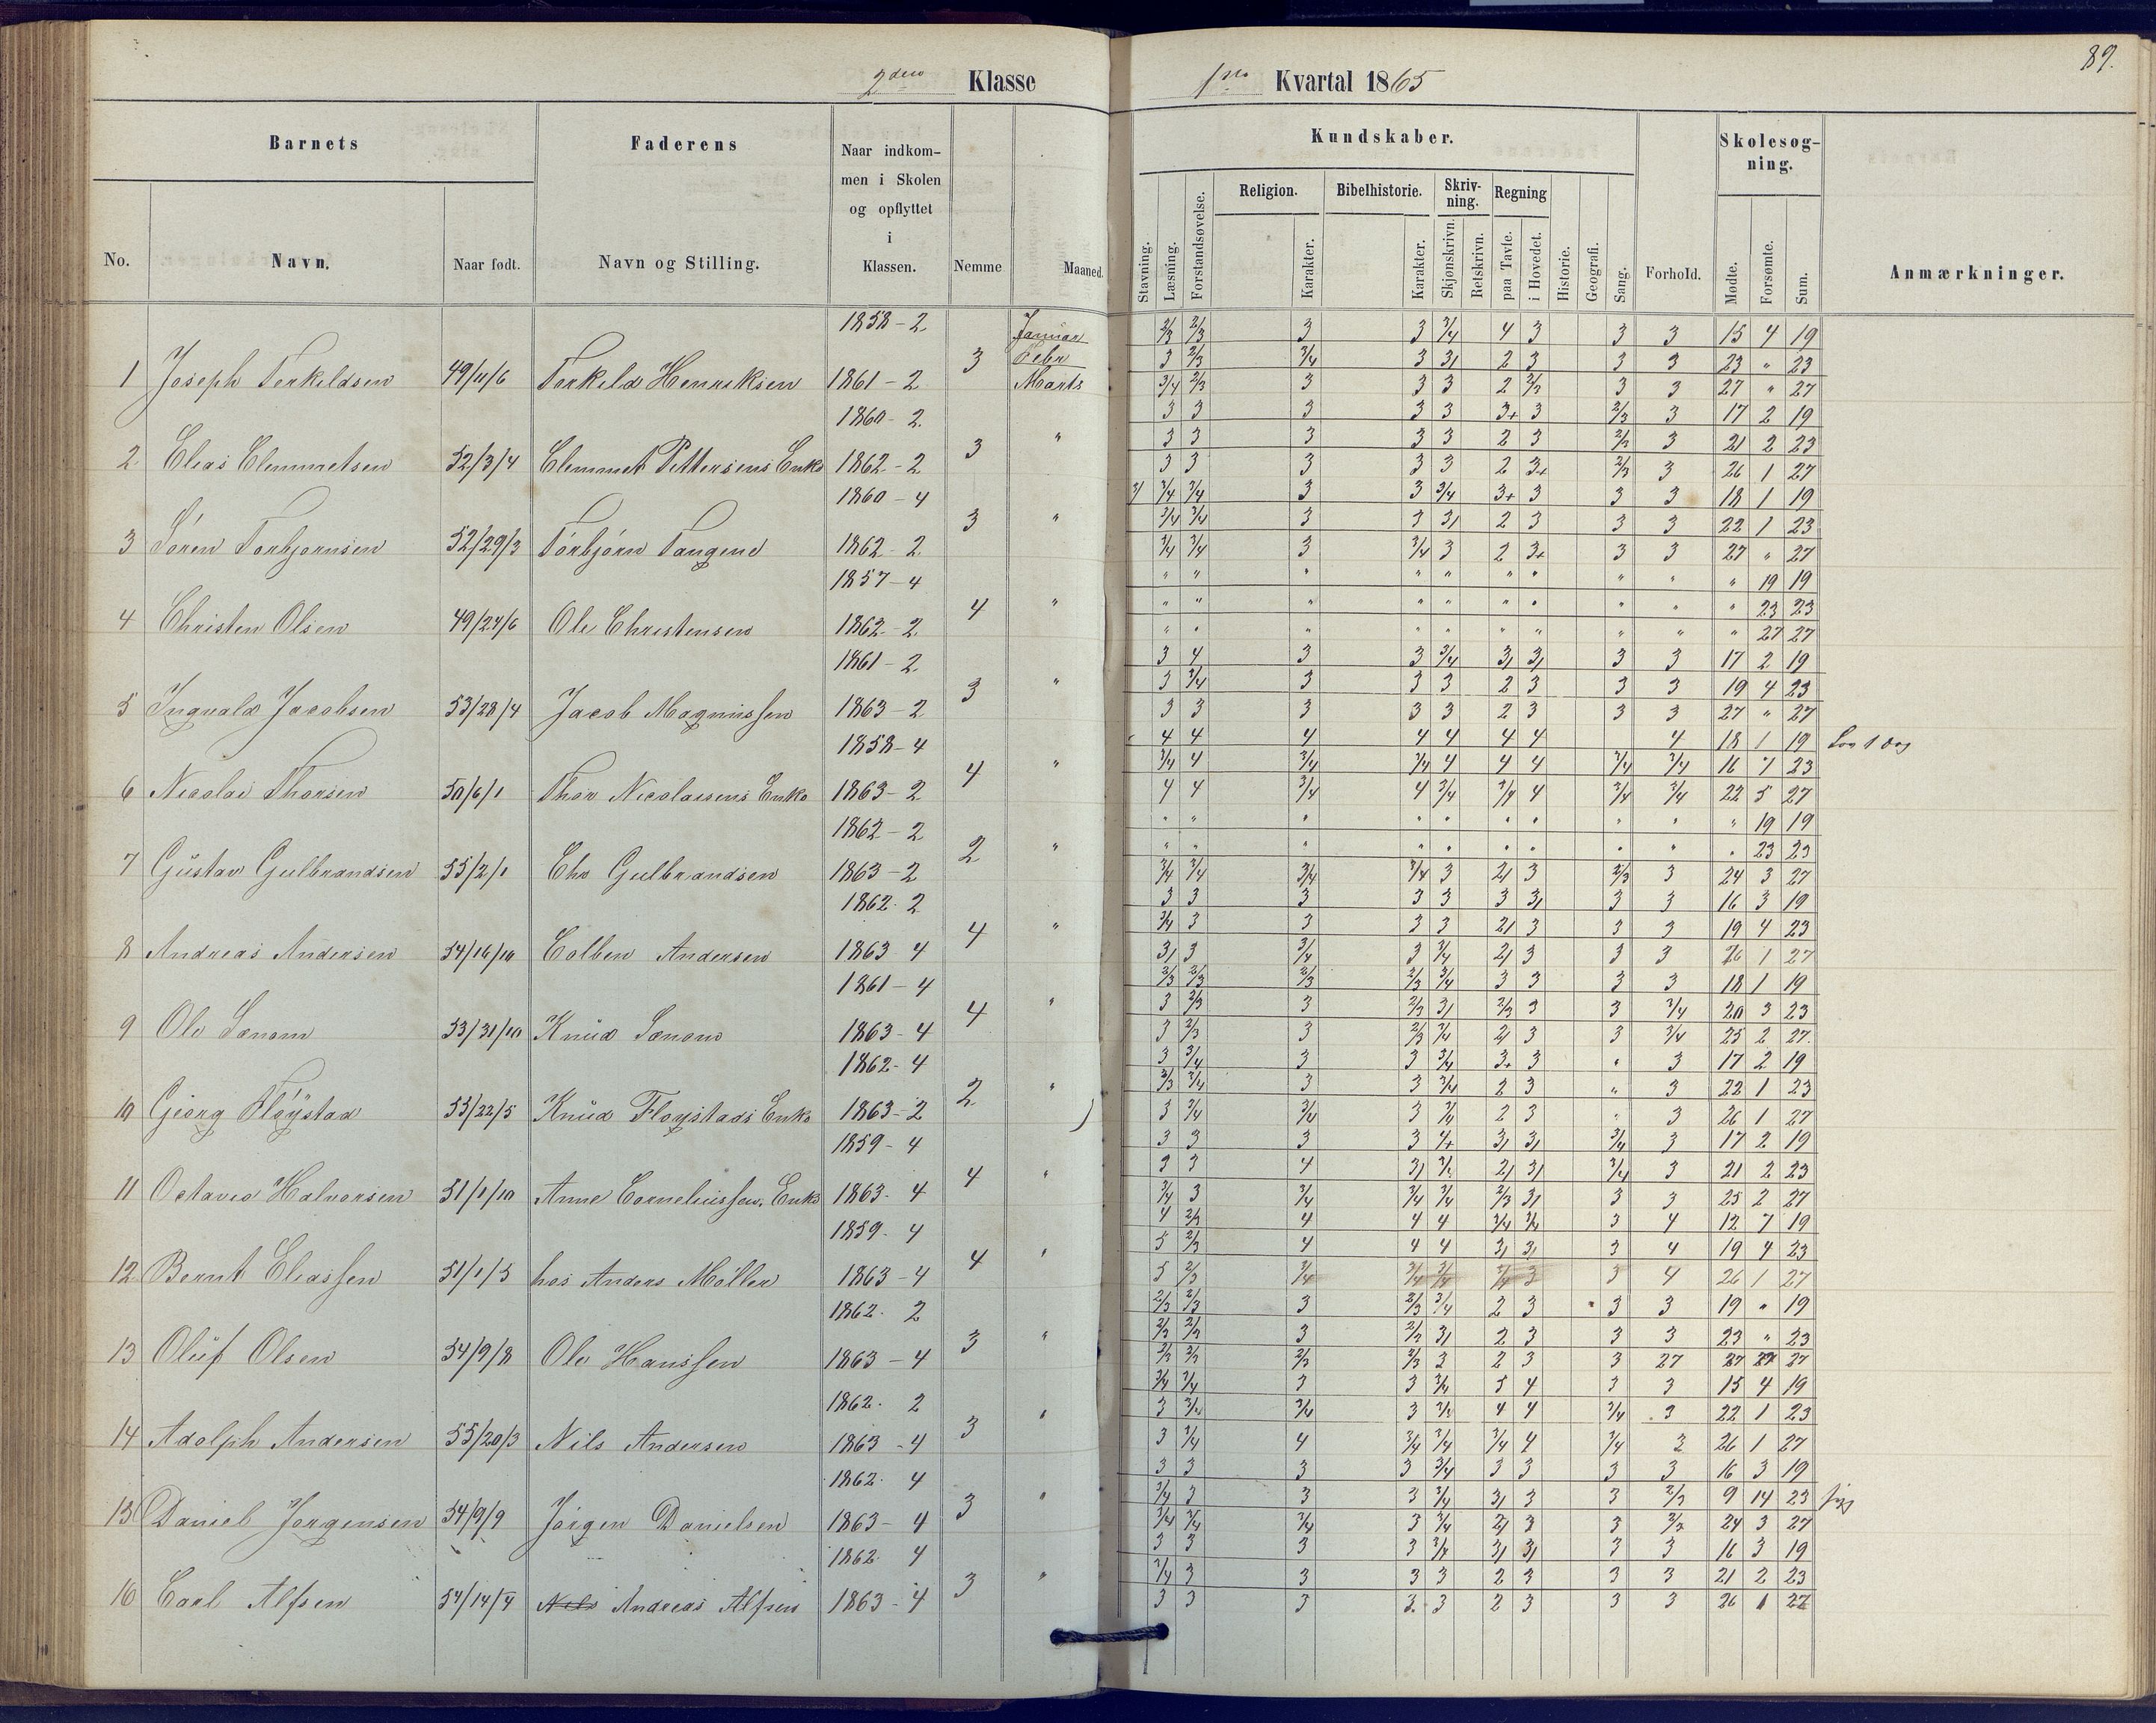 89.
2den Klasse
1ste Kvartal 1865
Barnets
Faderens
Naar indkommen i Skolen og opflyttet i Klassen.
Nemme
Maaned.
Kundskaber.
Forhold.
Skolesøgning.
Anmærkninger.
No. Navn. Naar født. Navn og Stilling.
Stavning. Læsning. Forstandsøvelse. Religion. Karakter. Bibelhistorie. Karakter. Skrivning. Skjønskrivn. Retskrivn. Regning paa Tavle. i Hovedet. Historie. Geografi. Sang. Mødte. Forsømte. Sum.
1858-2 Januar 2/3 2/3 3 3 3/4 4 3 3 3 15 4 19
3 Febr 3 2/3 3/4 3 3/ 2 3 3 3 23 " 23
1 Joseph Terkildsen 49/11/6 Terkild Henriksen 1861-2 Marts 3/4 2/3 3 3 3 2 2/3 3 3 27 " 27
1860-2. 3 3 3 3 3 3+ 3 2/3 3 17 2 19
3 " 3 3 3 3 3 2 3 2/3 3 21 2 23
2 Elias Clemmetsen 52/3/4 Clemmet Pettersens Enke 1862-2 3 3 3 3 3 2 3+ 2/3 3 26 1 27
1860-4 3/ 3/4 3/4 3 3 3/4 3+ 3 3 3 18 1 19
3 " 3/4 3/4 3 3 3/ 2 3 3 3 22 1 23
3 Sören Torbjørnsen 52/29/3 Törbjörn Tangene 1862-2 3/4 3/4 3 3/4 3 2 3+ 3 3 27 " 27
1857-4 " " " " " " " " " " 19 19
4 " " " " " " " " " " " 23 23
4 Christen Olsen 49/24/6 Ole Christensen 1862-2 " " " " " " " " " " 27 27
1861-2 3 4 3 3 3/4 3/ 3/ 3 3 17 2 19
3 " 3 3/4 3 3 3 2 3 3 3 19 4 23
5 Ingvald Jacobsen 53/28/4 Jacob Magnussen 1863-2 3 3 3 3 3 2 3 3 3 27 " 27
1858-4 4 4 4 4 4 4 4 4 18 1 19
4 " 3/4 4 3/4 3/4 4 4 4 3/4 3/4 16 7 23
6 Nicolai Thorsen 50/6/1 Thor Nicolaisens Enke 1863-2 4 4 3/4 4 3/4 3/4 4 3/4 3/4 22 5 27
1862-2 " " " " " " " " " " 19 19
2 " " " " " " " " " " " 23 23
7 Gustav Gulbrandsen 55/2/1 Chr Gulbrandsen 1863-2 3/4 3/4 3/4 3/4 3 2/ 3 2/3 3 24 3 27
1862-2 3 3 3 3 3 3 3/ 3 3 16 3 19
4 " 3/4 3 3 3 3 2/ 3 3 3 19 4 23
8 Andreas Andersen 54/16/10 Colben Andersen 1863-4 3/ 3 3/4 3 3/4 2/ 3 3 3 26 1 27
1861-4 2/3 2/3 2/3 2/3 3/4 3 3 3 3 18 1 19
4 " 3 2/3 3 2/3 3/ 2/3 3 3 3/4 20 3 23
9 Ole Sanom 53/31/10 Knud Sanom 1863-4 3 2/3 3 2/3 3/4 2/ 3 3 3/4 25 2 27.
1862-4 3 3/4 3 3 3/4 3+ 3 " 3 17 2 19
2 " 2/3 3/4 3 3 3/4 2 3 " 3 22 1 23
10 Georg Flöystad 53/22/5 Knud Floystads Enke 1863-2 3 3/4 3/4 3 3/4 2 3 " 3 26 1 27
1859-4 3 3 3 3 4+ 3/ 3/ 3/4 3 17 2 19
4 " 3 3 4 3/ 3/4 2/ 3/ 3/4 3 21 2 23
11 Octavus Halvorsen 51/1/10 Anne Corneliussen. Enke 1863-4 3/4 3 3/4 3/4 3/4 2/3 3/ 3 3 25 2 27
1859-4 4 2/3 4 4 4 3/4 3/4 3 4 12 7 19
4 " 5 2/3 4 4 4 3/ 3/ 3 4 19 4 23
12 Bernt Eliassen 51/1/5 hos Anders Möller 1863-4 5 2/3 3/4 3/4 3/4 3/4 3 3 4 26 1 27
1862-2 2/3 2/3 3 2/3 3/4 2 3 3 3 19 " 19
3 " 2/3 2/3 3 2/3 3/ 2 3 3 3 23 " 23
13 Oluf Olsen 54/9/8 Ole Hanssen 1863-4 2/3 2/3 2/3 2/3 3 2 3 3 27 27 27 27
1862-2 3/4 3/4 3 3 3/4 5 4 3 3 15 4 19
3 " 3 3/4 3/4 3 3/4 4 4 3/4 3 22 1 23
14 Adolph Andersen 55/20/3 Nils Andersen 1863-4 3 3/4 4 3/4 3/4 3/4 4 3/4 3 26 1 27
1862-4 3 3 3 3 3/4 3 3 3 3 16 3 19
3 " 3/4 3 3 3 3/4 3/ 3 3 2/3 9 14 23 syg
15 Daniel Jørgensen 54/9/9 Jörgen Danielsen 1863-4 3/4 3/4 3/4 3 3/4 2/ 3 3 2/3 24 3 27
1862-4 3 3 3 3 3/4 3/ 3/ 3 3 16 3 19
3 " 3/4 3 3 3 3 2 3 3 3 21 2 23
16 Carl Alfsen 54/14/4 Nils Andreas Alfsen 1863-4 3 3 3 3. 3 2 3 3 3 26 1 27